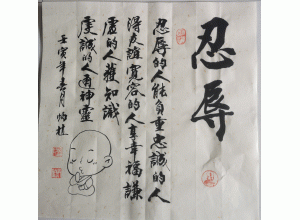 忍辱
忍辱的人能負重忠誠的人
得友誼寬容的人享幸福謙
虛的人獲知識
虔誠的人通神靈
壬寅年春月